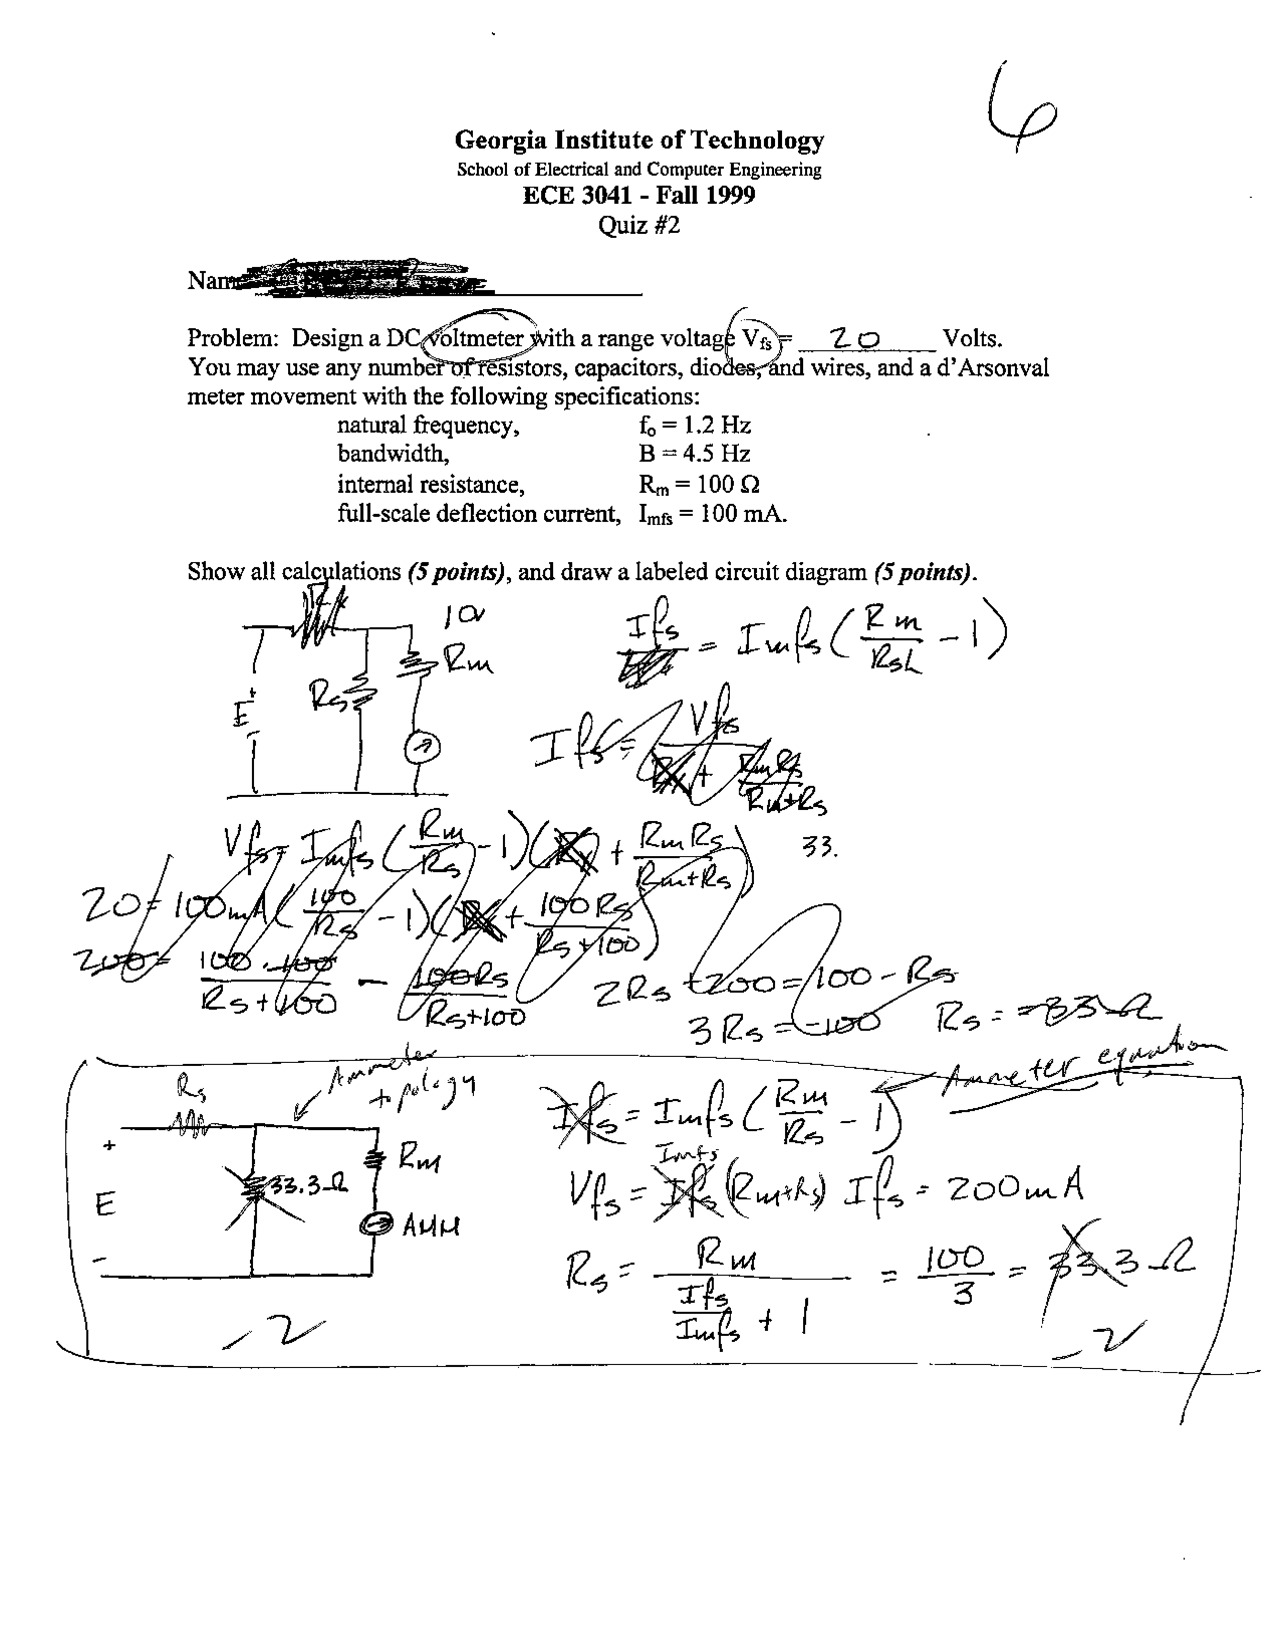 6
Georgia Institute of Technology
School of Electrical and Computer Engineering
ECE 3041 - Fall 1999
Quiz #2
Nam
Problem: Design a DC voltmeter with a range voltage Vfs = 20 Volts.
You may use any number of resistors, capacitors, diodes, and wires, and a d'Arsonval
meter movement with the following specifications:
natural frequency, fo = 1.2 Hz
bandwidth, B = 4.5 Hz
internal resistance, Rm = 100 Ω
full-scale deflection current, Imfs = 100 mA.
Show all calculations (5 points), and draw a labeled circuit diagram (5 points).
10v
Rm
Rs
E
+
-
Ifs = Imfs (Rm/Rsh - 1)
Ifs = Vfs / ( + RmRs/Rm+Rs)
Vfs = Imfs (Rm/Rs - 1)( + RmRs/Rm+Rs)
33.
20 = 100mA (100/Rs - 1)( + 100Rs/Rs+100)
200 = 100·100/Rs+100 - 100Rs/Rs+100
2Rs + 200 = 100 - Rs
3Rs = -100 Rs = -33 Ω
Ammeter topology
Ammeter equation
Rs
+
E
-
33.3 Ω
Rm
AMM
-2
Ifs = Imfs (Rm/Rs - 1)
Imfs
Vfs = Ifs (Rm+Rs) Ifs = 200mA
Rs = Rm / (Ifs/Imfs + 1) = 100/3 = 33.3 Ω
-2